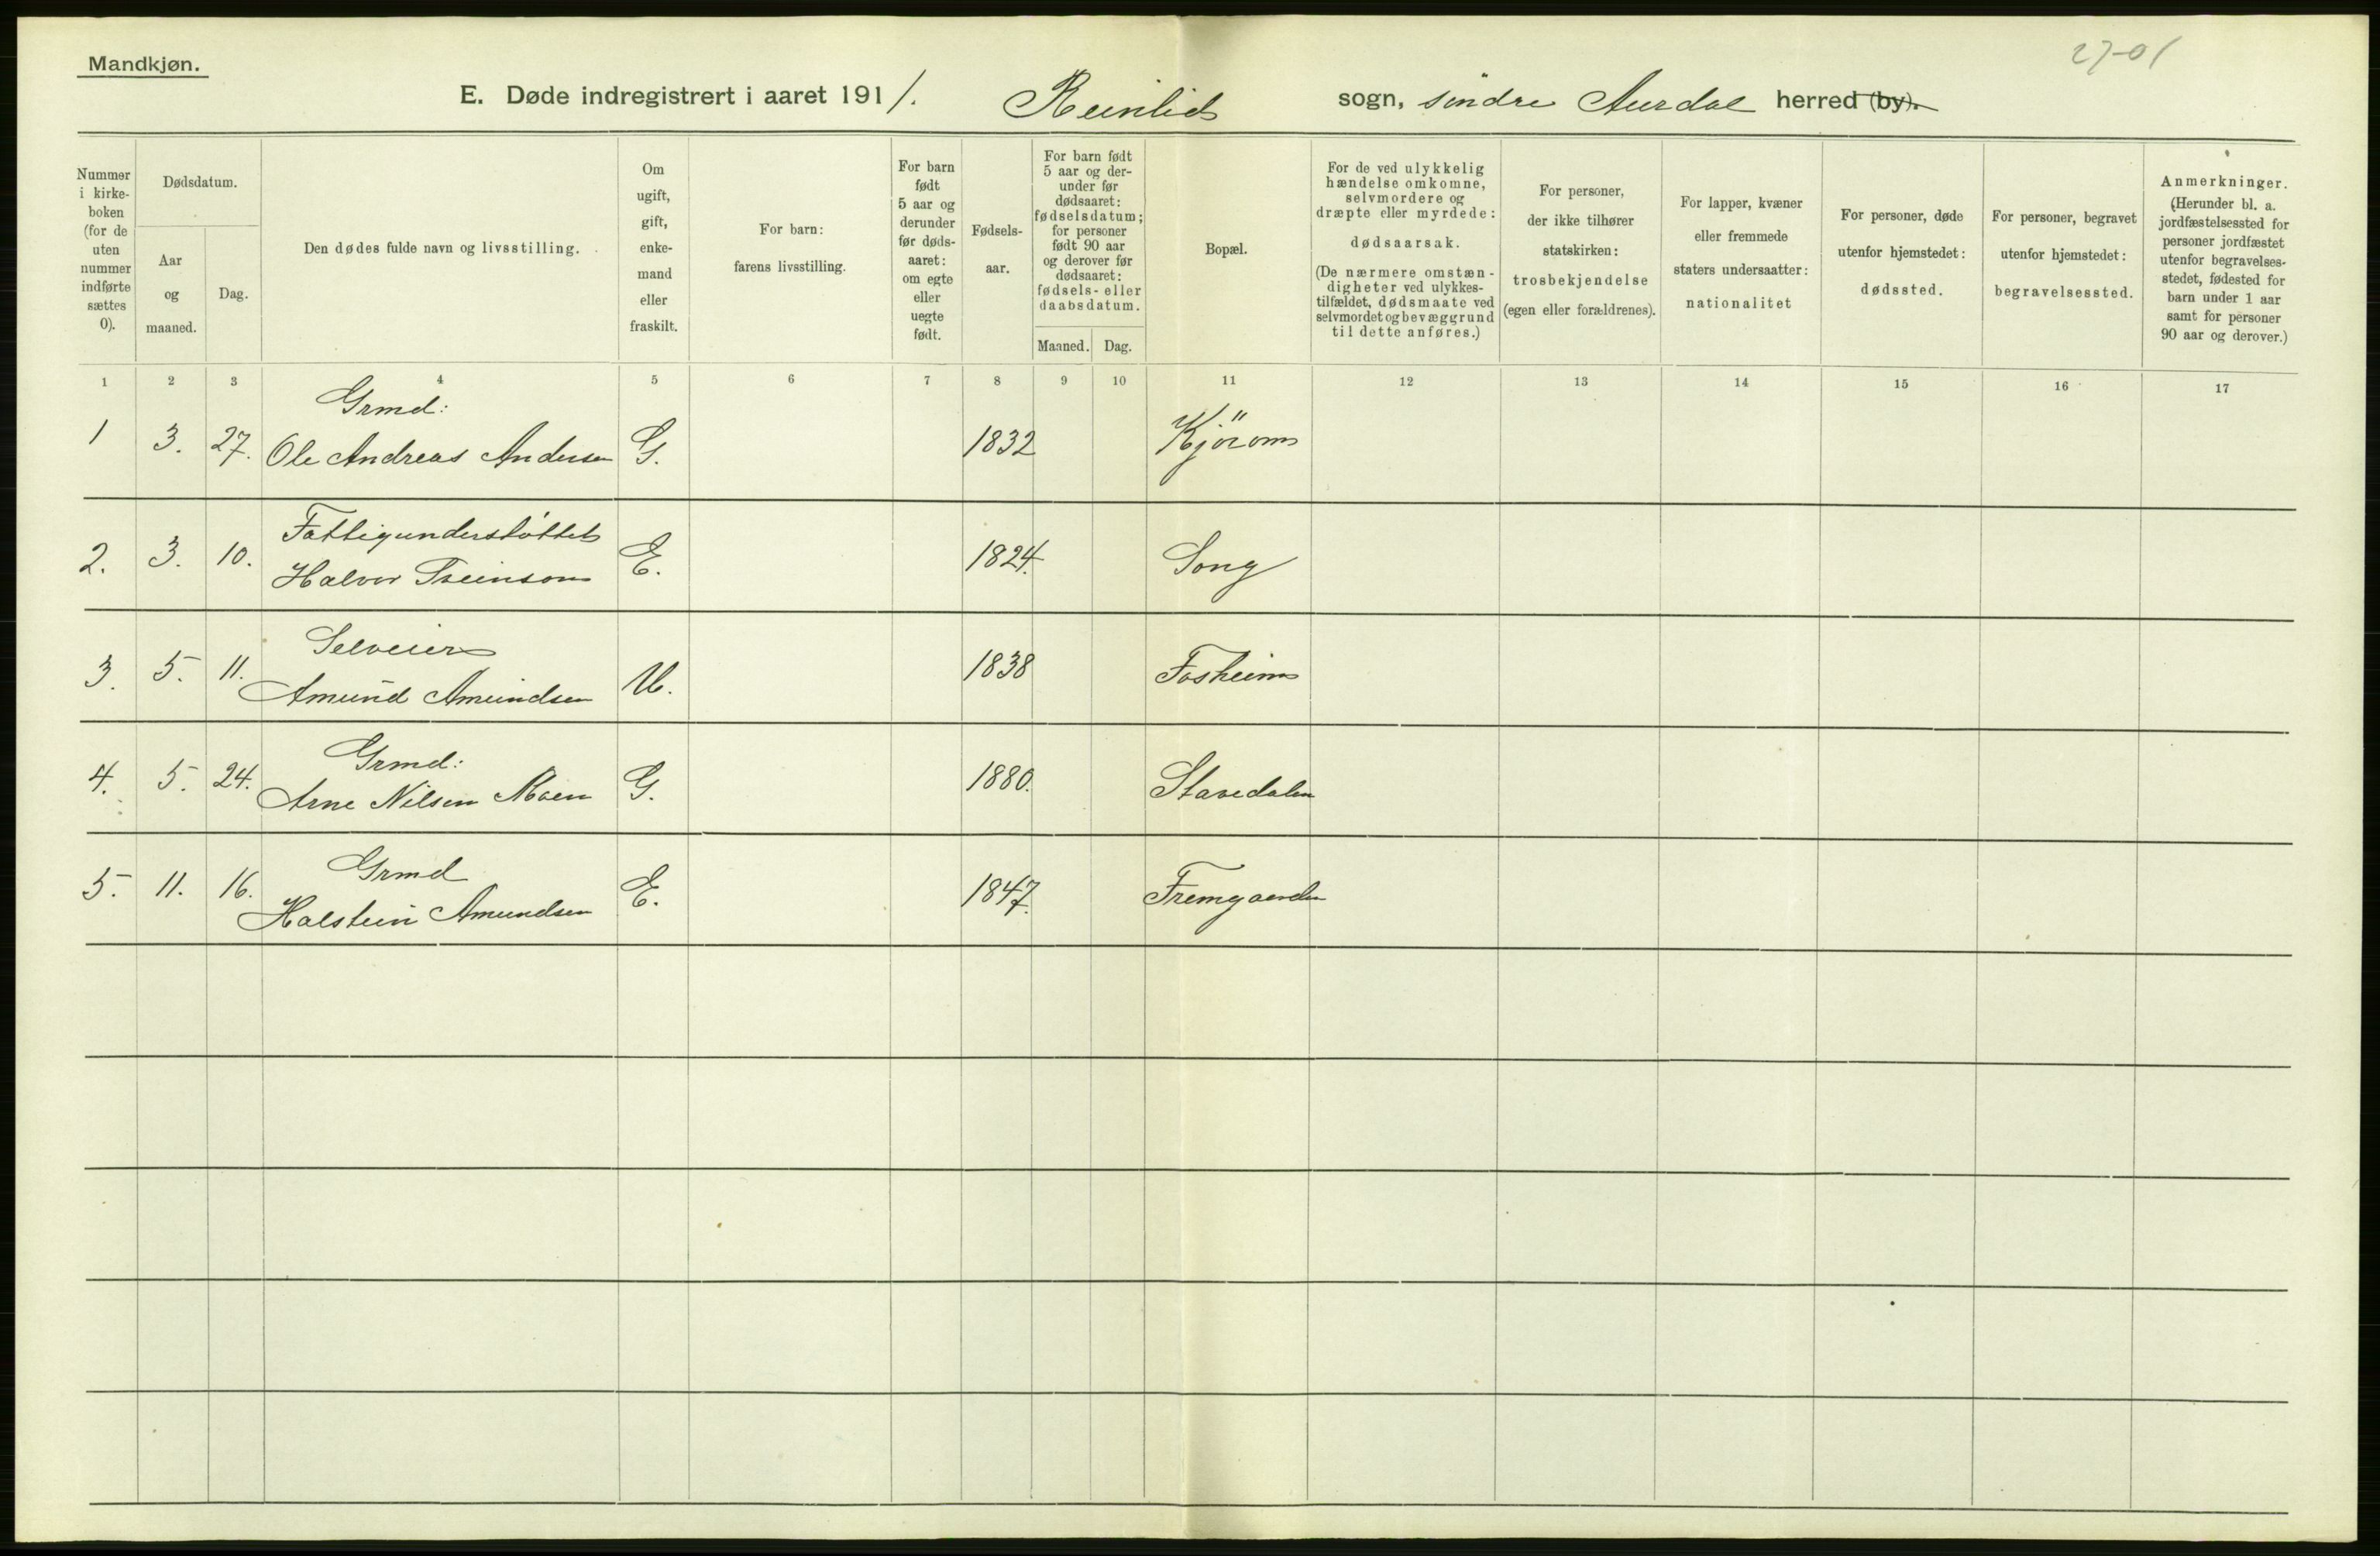 Mandkjøn.
27-01
E. Døde indregistrert i aaret 1911. Reinlids sogn, söndre Aurdal herred (by).
Nummer i kirke-boken (for de uten nummer indførte sættes 0).
Dødsdatum.
Aar og maaned.
Dag.
Den dødes fulde navn og livsstilling.
Om ugift, gift, enke-mand eller fraskilt.
For barn: farens livsstilling.
For barn født 5 aar og derunder før døds-aaret: om egte eller uegte født.
Fødsels-aar.
For barn født 5 aar og der-under før dødsaaret: fødselsdatum; for personer født 90 aar og derover før dødsaaret: fødsels- eller daabsdatum.
Maaned.
Dag.
Bopæl.
For de ved ulykkelig hændelse omkomne, selvmordere og dræpte eller myrdede: dødsaarsak. (De nærmere omstæn-digheter ved ulykkes-tilfældet, dødsmaate ved selvmordet og bevæggrund til dette anføres.)
For personer, der ikke tilhører statskirken: trosbekjendelse (egen eller forældrenes).
For lapper, kvæner eller fremmede staters undersaatter: nationalitet
For personer, døde utenfor hjemstedet: dødssted.
For personer, begravet utenfor hjemstedet: begravelsessted.
Anmerkninger. (Herunder bl. a. jordfæstelsessted for personer jordfæstet utenfor begravelses-stedet, fødested for barn under 1 aar samt for personer 90 aar og derover.)
1 2 3 4 5 6 7 8 9 10 11 12 13 14 15 16 17
Grmd:
1 3. 27. Ole Andreas Andersen G. 1832 Kjörom
Fattigunderstöttet
2. 3. 10. Halvor Steinson E. 1824. Song
Selveier
3. 5. 11. Amund Amundsen U. 1838 Fosheim
Grmd:
4. 5. 24. Arne Nilsen Moen G. 1880. Stavedalen
Grmd
5. 11. 16. Halstein Amundsen E. 1847. Fremgaarden